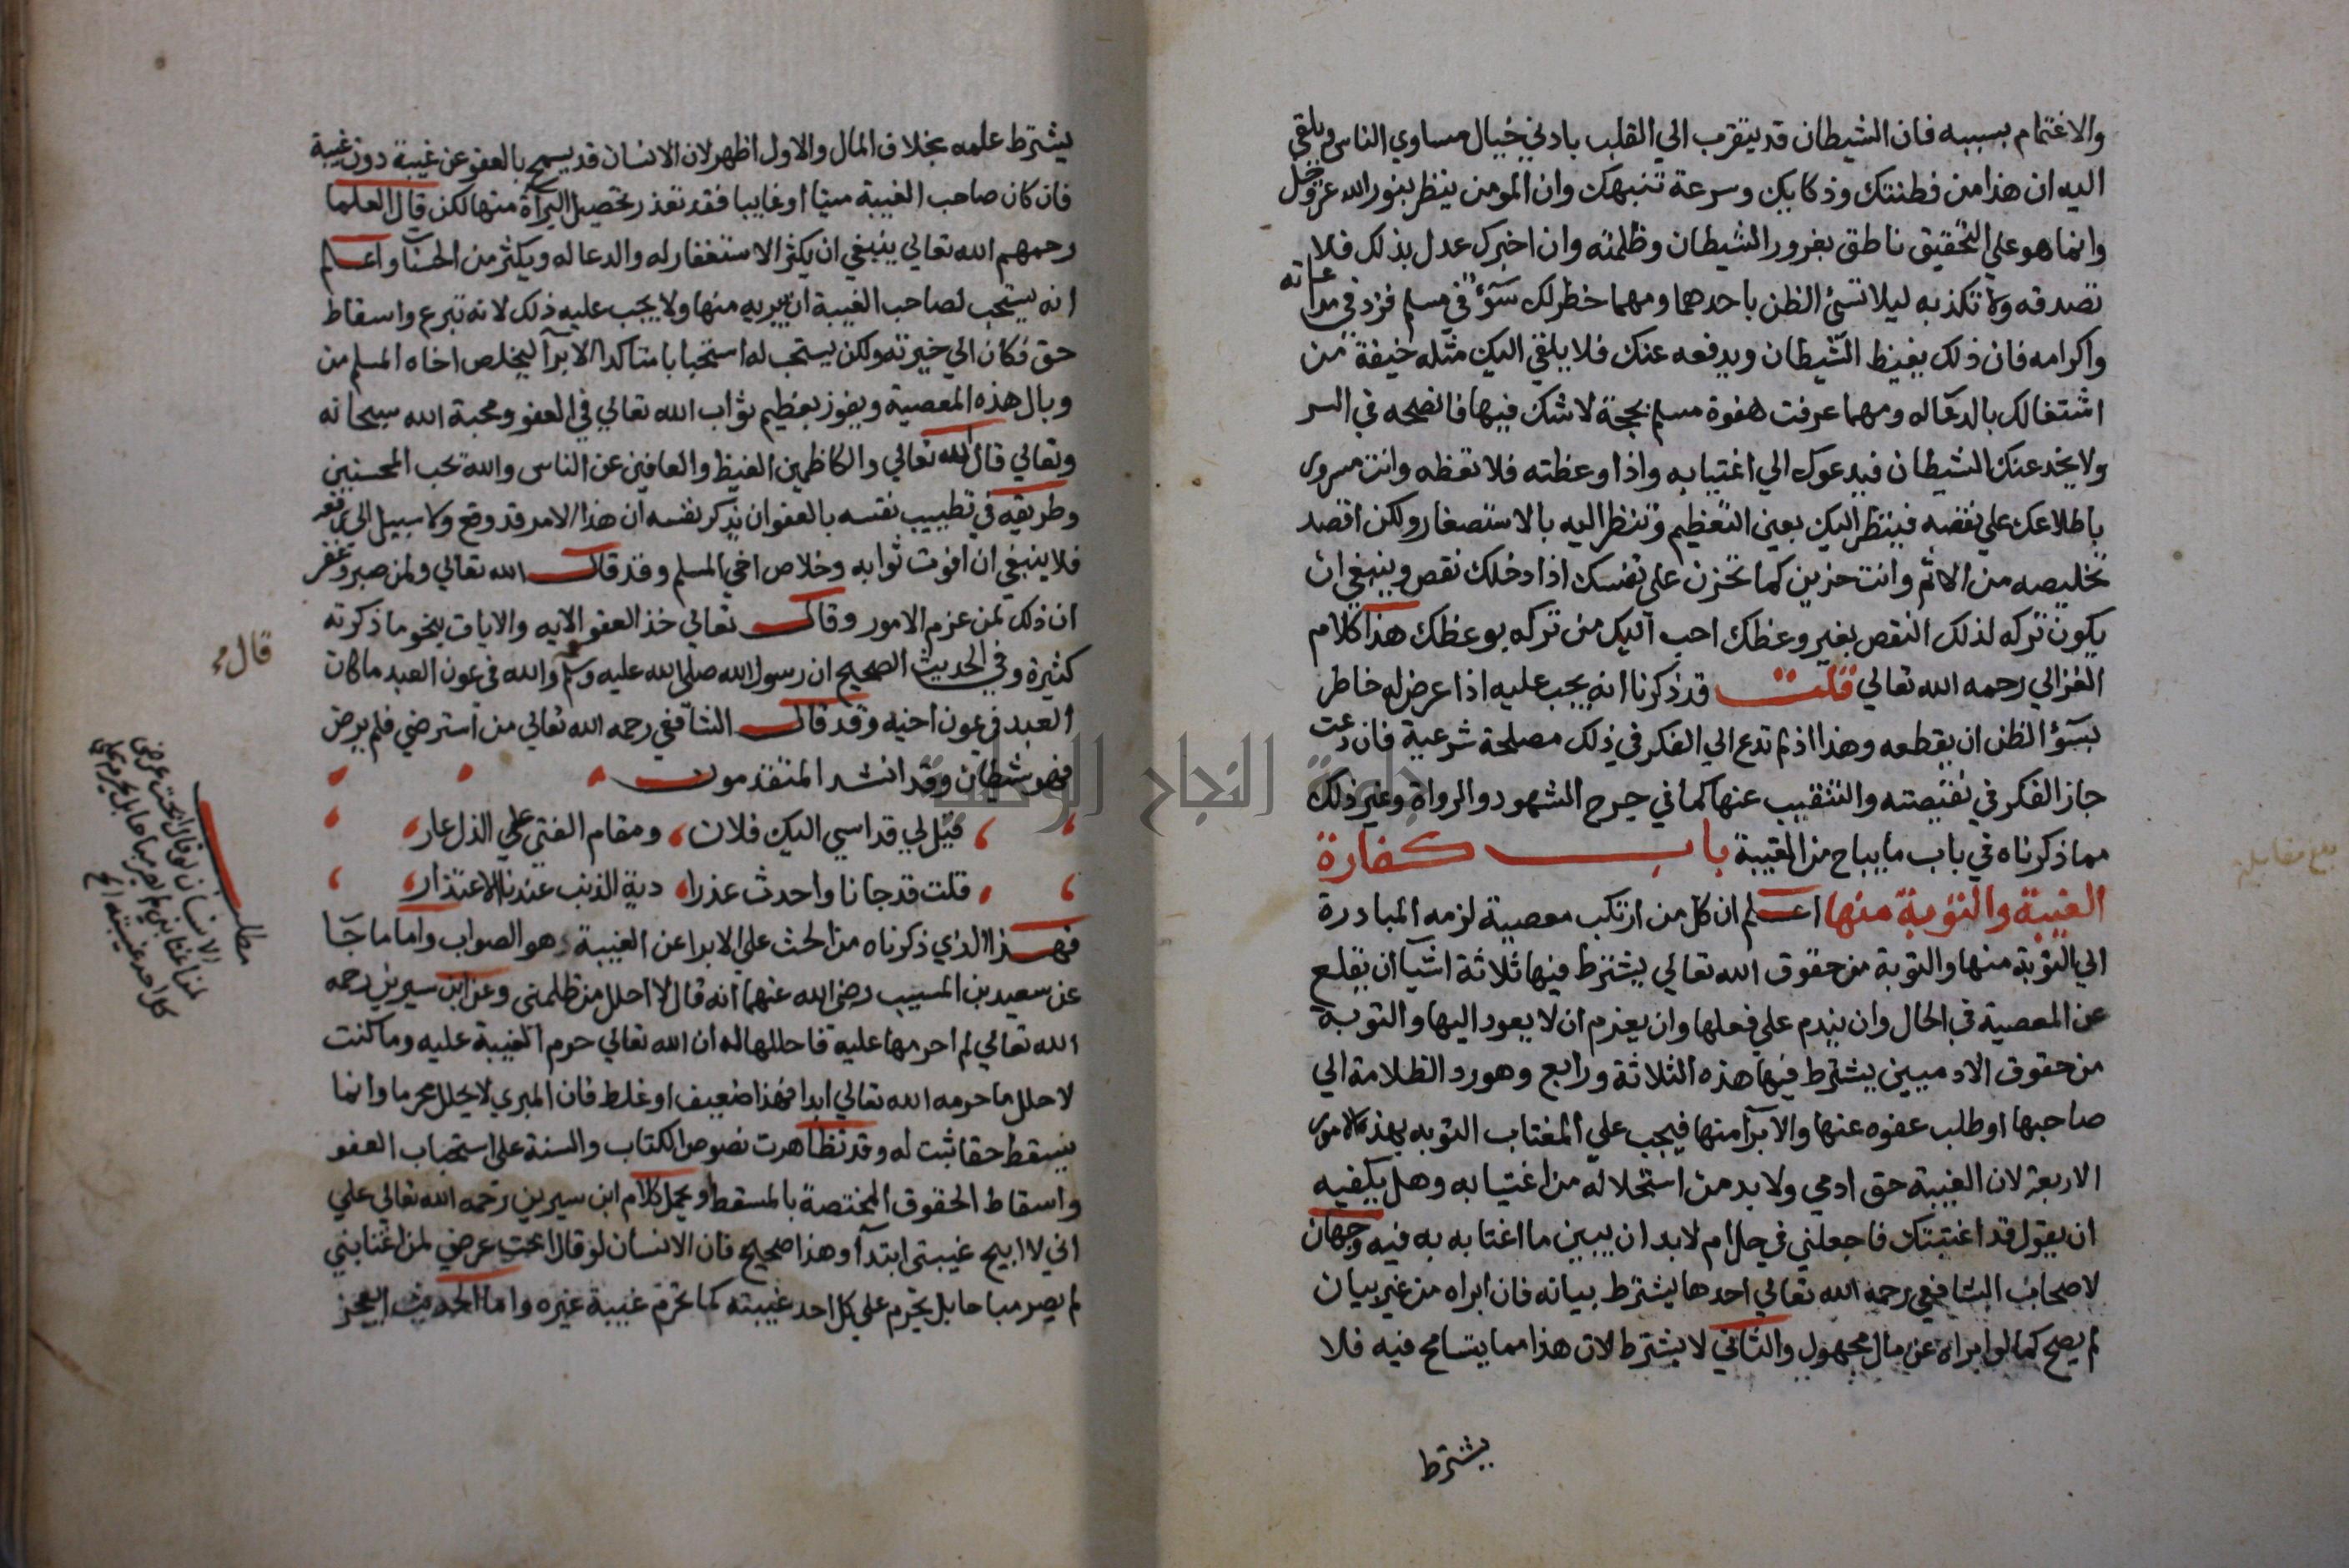 والاغتمام بسببه فان الشيطان قد يتقرب الي القلب بادني خيال مساوي الناس ويلقي
اليه ان هذا من فطنتك وذكايك وسرعة تنبهك وان المومن ينظر بنور الله عز وجل
وانما هو علي التحقيق ناطق بغرور الشيطان وظلمته وان اخبرك عدل بذلك فلا
تصدقه ولا تكذبه ليلا تسئ الظن باحدهما ومهما خطر لك سوٓء في مسلم فزد في مراعاته
واكرامه فان ذلك يغيظ الشيطان ويدفعه عنك فلا يلقي اليك مثله خيفة من
اشتغالك بالدعاله ومهما عرفت هفوة مسلم بحجة لا شك فيها فانصحه في السر
ولا يخدعنك الشيطان فيدعوك الي اغتيابه واذا وعظته فلا تعظه وانت مسرور
باطلاعك علي نقصه فينظر اليك بعين التعظيم وتنظر اليه بالاستصغار ولكن اقصد
تخليصه من الاثم وانت حزين كما تحزن علي نفسك اذا دخلك نقص وينبغي ان
يكون تركه لذلك النقص بغير وعظك احب اليك من تركه بوعظك هذا كلام
الغزالي رحمه الله تعالي قلت قد ذكرنا انه يجب عليه اذا عرض له خاطر
بسوٓء الظن ان يقطعه وهذا اذ لم تدع الي الفكر في ذلك مصلحة شرعية فان دعت
جاز الفكر في نقيصته والتنقيب عنها كما في جرح الشهود والرواة وغير ذلك
مما ذكرناه في باب ما يباح من الغيبة باب كفارة
الغيبة والتوبة منها اعلم ان كل من ارتكب معصية لزمه المبادرة
الي التوبة منها والتوبة من حقوق الله تعالي يشترط فيها ثلاثة اشيآ ان يقلع
عن المعصية في الحال وان يندم علي فعلها وان يعزم ان لا يعود اليها والتوبة
من حقوق الادميين يشترط فيها هذه الثلاثة ورابع وهو رد الظلامة الي
صاحبها او طلب عفوه عنها والابرآ منها فيجب علي المغتاب التوبه بهذه الامور
الاربعة لان الغيبة حق ادمي ولا بد من استحلاله من اغتيابه وهل يكفيه
ان يقول قد اغتبتك فاجعلني في حل ام لا بد ان يبين ما اغتابه به فيه وجهان
لاصحاب الشافعي رحمه الله تعالي احدها يشترط بيانه فان ابراه من غير بيان
لم يصح كما لو ابراه عن مال مجهول والثاني لا يشترط لان هذا مما يتسامح فيه فلا
يشترط
بلغ مقابلة
يشترط علمه بخلاف المال والاول اظهر لان الانسان قد يسمح بالعفو عن غيبة دون غيبة
فان كان صاحب الغيبة ميتا او غايبا فقد تعذر تحصيل البرآة منها لكن قال العلما
رحمهم الله تعالي ينبغي ان يكثر الاستغفار له والدعا له ويكثر من الحسنات واعلم
انه يستحب لصاحب الغيبة ان يبريه منها ولا يجب عليه ذلك لانه تبرع واسقاط
حق فكان الي خيرته ولكن يستحب له استحبابا متاكدا الابرآ ليخلص اخاه المسلم من
وبال هذه المعصية ويفوز بعظيم ثواب الله تعالي في العفو ومحبة الله سبحانه
وتعالي قال الله تعالي والكاظمين الغيظ والعافين عن الناس والله يحب المحسنين
وطريقه في تطييب نفسه بالعفو ان يذكر نفسه ان هذا الامر قد وقع ولا سبيل الي رفعه
فلا ينبغي ان افوت ثوابه وخلاص اخي المسلم وقد قال الله تعالي ولمن صبر وغفر
ان ذلك لمن عزم الامور وقال تعالي خذ العفو الايه والايات بنحو ما ذكرته
كثيرة وفي الحديث الصحيح ان رسول الله صلي الله عليه وسلم والله في عون العبد ما كان
قال
العبد في عون اخيه وقد قال الشافعي رحمه الله تعالي من استرضي فلم يرض
فهو شيطان وقد انشد المتقدمون
قيل لي قد اسي اليك فلان ومقام الفتي علي الذل عار
قلت قد جانا واحدث عذرا دية الذنب عندنا الاعتذار
فهذا الذي ذكرناه من الحث علي الابرا عن الغيبة هو الصواب واما ما جآ
عن سعيد بن المسيب رضي الله عنهما انه قال لا احلل من ظلمني وعن ابن سيرين رحمه
الله تعالي لم احرمها عليه فاحللها له ان الله تعالي حرم الغيبة عليه وما كنت
لاحلل ما حرمه الله تعالي ابدا فهذا ضعيف او غلط فان المبري لا يحلل محرما وانما
يسقط حقا ثبت له وقد تظاهرت نصوص الكتاب والسنة علي استحباب العفو
واسقاط الحقوق المختصة بالمسقط او يحمل كلام ابن سيرين رحمه الله تعالي علي
اني لا ابيح غيبتي ابتدآ وهذا صحيح فان الانسان لو قال ابحت عرضي لمن اغتابني
لم يصر مباحا بل يحرم علي كل احد غيبته كما تحرم غيبة غيره واما الحديث ايعجز
مطلب
الانسان لو قال ابحت عرضي
لمن اغتابني لم يصر مباحا بل يحرم علي
كل احد غيبته الخ
جامعة النجاح الوطنية